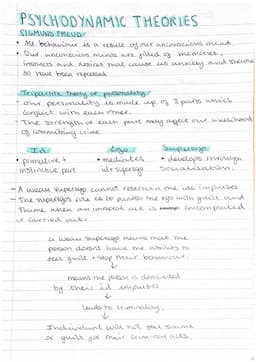 PSYCHODYNAMIC THEORIES
SIGMUND FREUD
• All behaviour is a result of our unconscious mind.
• Our unconscious minds are filled of memories,
instincts and desires that cause us anxiety and shame
so have been repressed
Tripartite theory of personality
• our personality is made up of 3 parts which
conflict with each other.
• The strength of each part may affect our likelihood
of committing crime
Id Ego Superego
• primitive + • mediates • develops through
instinctive part id + superego socialisation.
- A weak superego cannot restrain the ids impulses
- The superego's role is to punish the ego with guilt and
shame when an immoral act is contemplated
or carried out.
a weak superego means that the
person doesn't have the ability to
feel guilt + stop their behaviour.
means the person is dominated
by their id impulses
leads to criminality.
Individual will not feel shame
or guilt for their criminal acts.